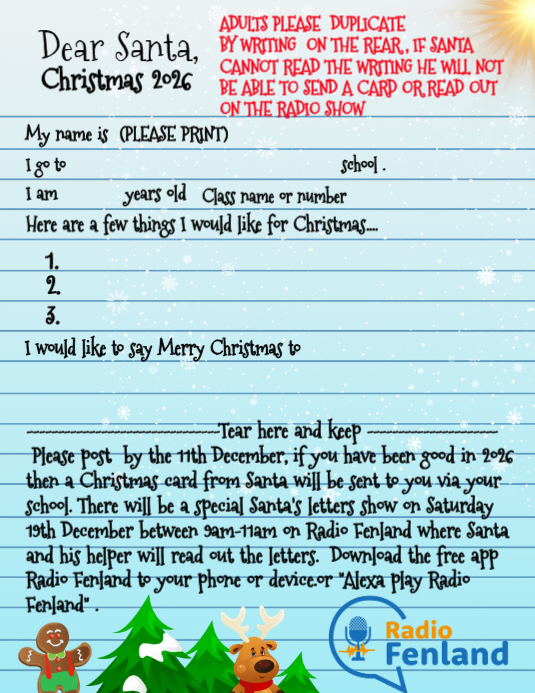 Dear Santa,
Christmas 2026
ADULTS PLEASE DUPLICATE
BY WRITING ON THE REAR, IF SANTA
CANNOT READ THE WRITING HE WILL NOT
BE ABLE TO SEND A CARD OR READ OUT
ON THE RADIO SHOW
My name is (PLEASE PRINT)
I go to school .
I am years old Class name or number
Here are a few things I would like for Christmas....
1.
2.
3.
I would like to say Merry Christmas to
--------------------------------Tear here and keep ----------------------
Please post by the 11th December, if you have been good in 2026
then a Christmas card from Santa will be sent to you via your
school. There will be a special Santa's letters show on Saturday
19th December between 9am-11am on Radio Fenland where Santa
and his helper will read out the letters. Download the free app
Radio Fenland to your phone or device.or "Alexa play Radio
Fenland" .
Radio
Fenland